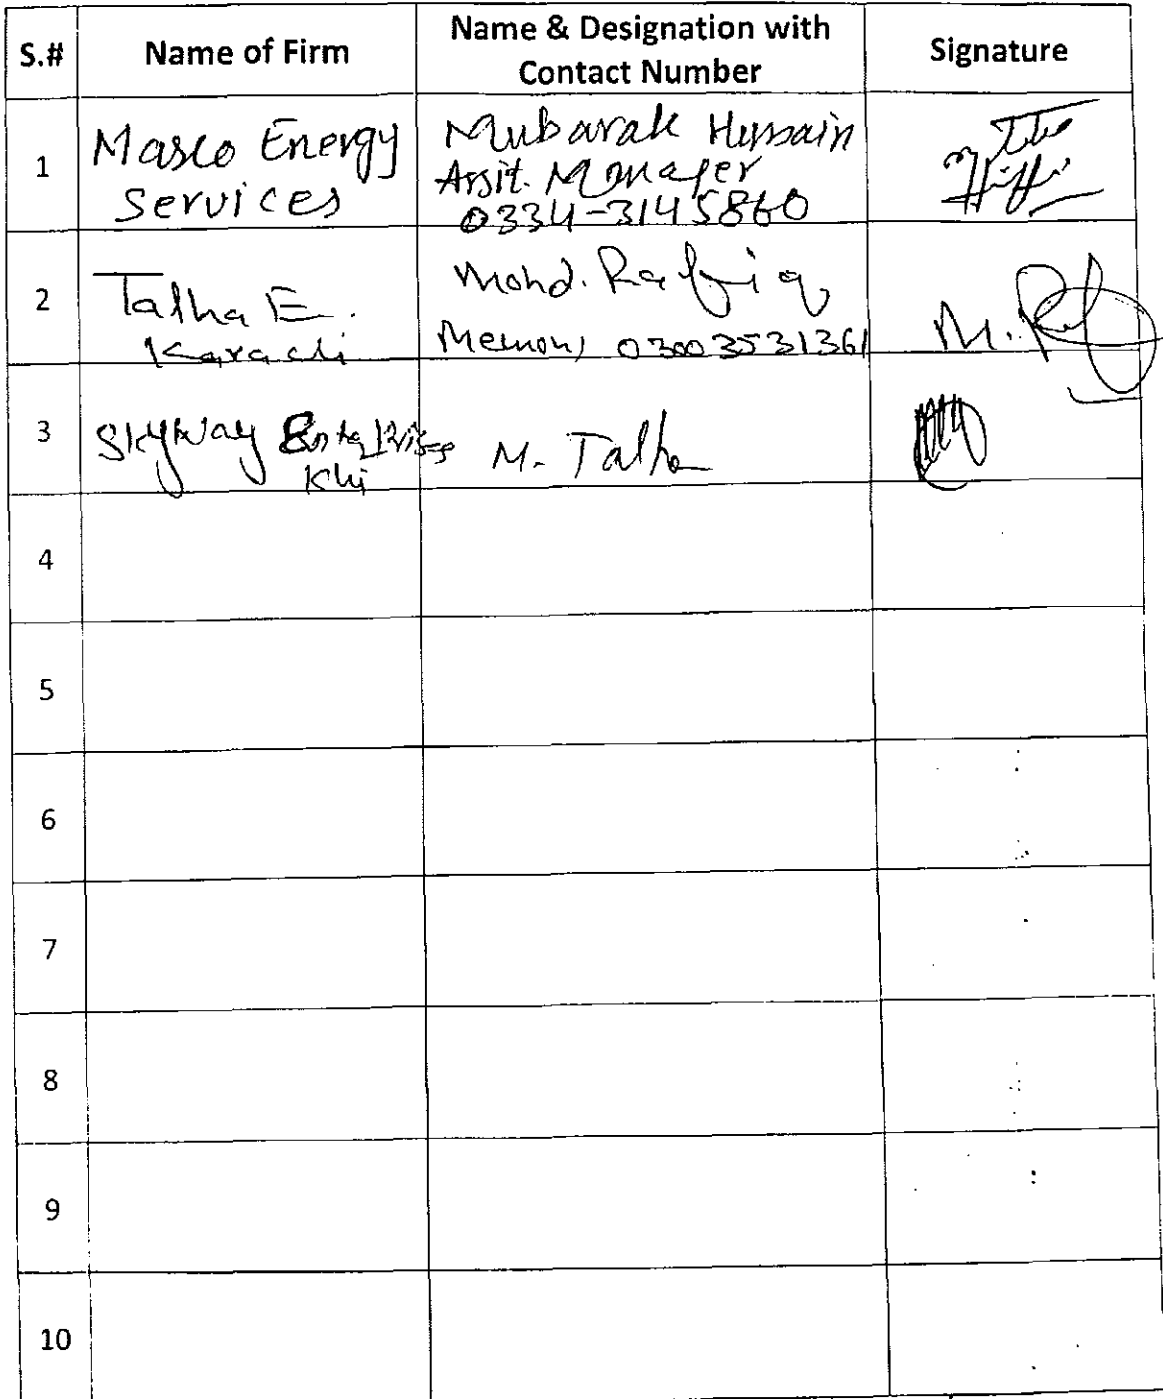 S.# Name of Firm Name & Designation with Contact Number Signature
1 Masco Energy Services Mubarak Hussain Assit. Manager 0334-3145860
2 Talha E. Karachi Mohd. Rafiq Memon, 03003531361 M.
3 Skyway Enterprises Khi M. Talha
4
5
6
7
8
9
10